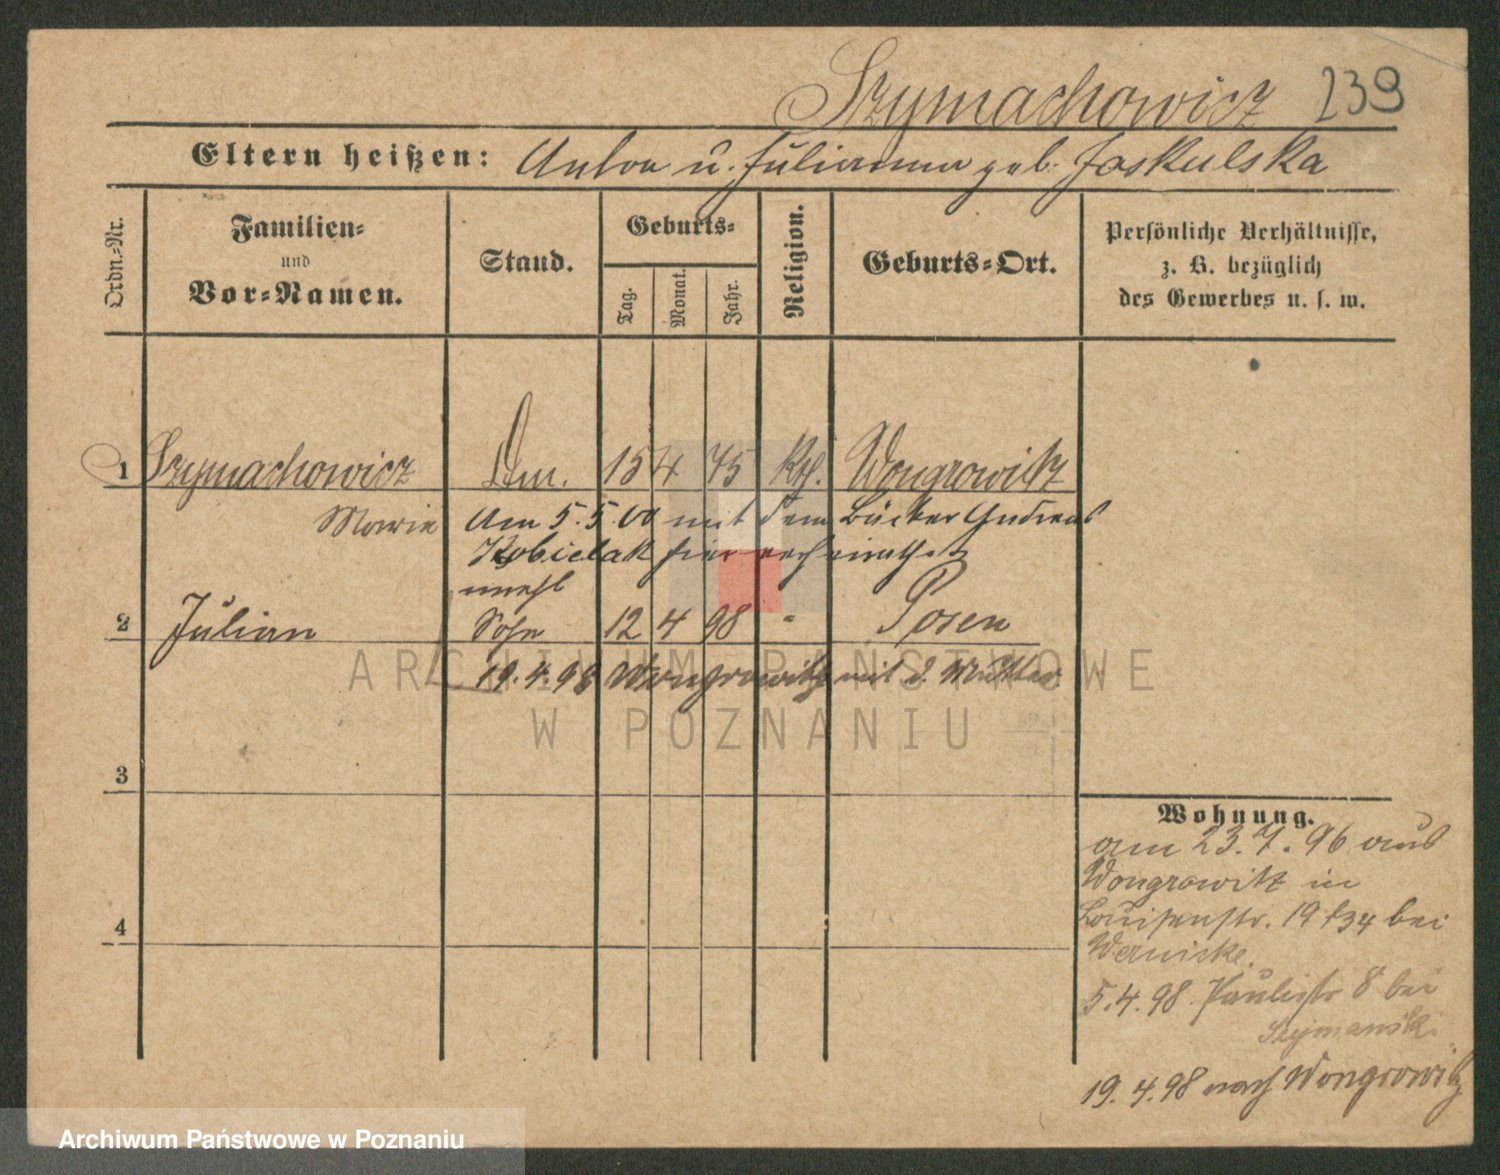 Szymachowicz 239
Eltern heißen: Anton u. Julianna geb. Jaskulska
Ordn.-Nr.
Familien-
und
Vor-Namen.
Stand.
Geburts-
Tag.
Monat.
Jahr.
Religion.
Geburts-Ort.
Persönliche Verhältnisse,
z. B. bezüglich
des Gewerbes u. s. w.
1 Szymachowicz 15 4 75 kth. Wongrowitz
Marie Am 5.5.00 mit dem Bäcker Andreas
Kobielak hier verheirathet
unehl
2 Julian Sohn 12 4 98 " Posen
19.4.98 Wongrowitz mit d. Mutter
3
4
Wohnung.
am 23.7.96 aus
Wongrowitz in
Louisenstr. 19 bei
Wernicke.
5.4.98. Paulistr 8 bei
Szymanski
19.4.98 nach Wongrowitz
ARCHIWUM PAŃSTWOWE
W POZNANIU
Archiwum Państwowe w Poznaniu